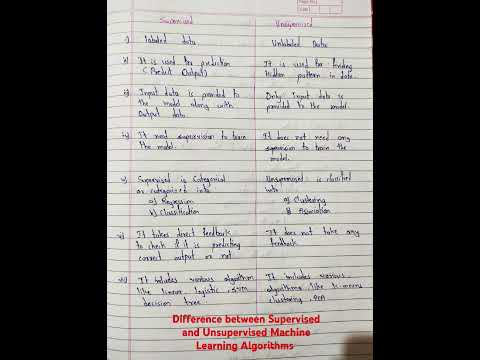 Supervised Unsupervised
i) labeled data Unlabeled Data
ii) It is used for prediction It is used for finding
(Predict Output) Hidden pattern in data.
iii) Input data is provided to Only Input data is
the model along with provided to the model.
Output data
iv) It need supervision to train It does not need any
the model. supervision to train the
model.
v) Supervised is Categorial Unsupervised is classified
or categorized into into
a) Regression a) Clustering
b) Classification b) Association
vi) It takes direct feedback It does not take any
to check if it is predicting feedback
correct output or not
vii) It includes various algorithm It includes various
like linear, logistic, SVM algorithms like k-means
decision tree clustering, PCA
Difference between Supervised
and Unsupervised Machine
Learning Algorithms